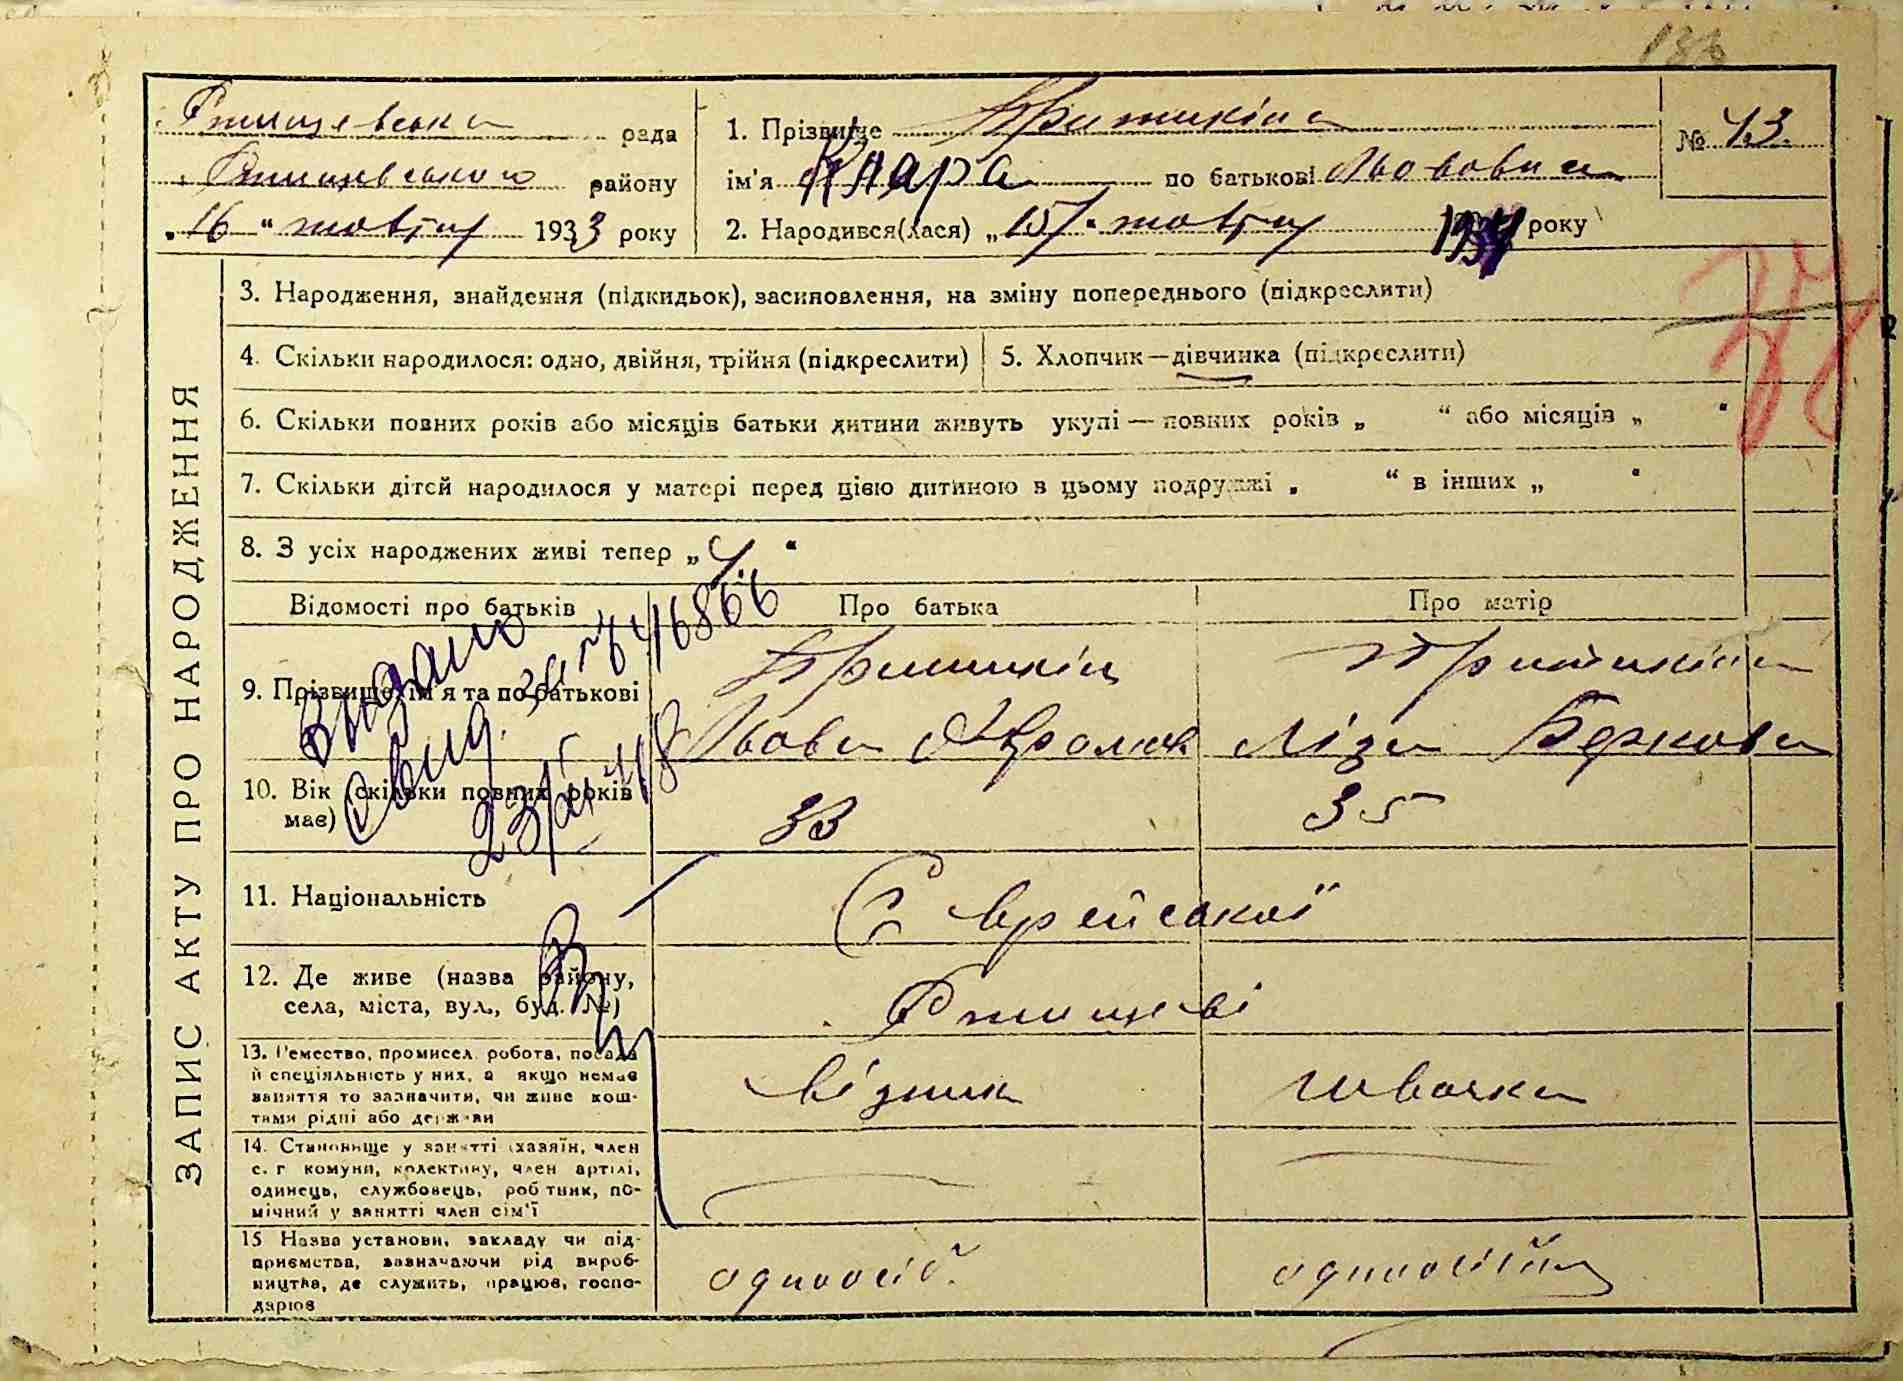 Ртищевська рада
Ртищевського району
„16“ жовтня 1933 року
1. Прізвище Притикіна
ім'я Клара по батькові Львовна
2. Народився(лася) „15“ жовтня року
№ 43.
ЗАПИС АКТУ ПРО НАРОДЖЕННЯ
3. Народження, знайдення (підкидьок), засиновлення, на зміну попереднього (підкреслити)
4. Скільки народилося: одно, двійня, трійня (підкреслити)
5. Хлопчик—дівчинка (підкреслити)
6. Скільки повних років або місяців батьки дитини живуть укупі — повних років „ “ або місяців „ “
7. Скільки дітей народилося у матері перед цією дитиною в цьому подружжі „ “ в інших „ “
8. З усіх народжених живі тепер „4“
Відомості про батьків
Про батька
Про матір
9. Прізвище ім'я та по батькові
Притикін
Притикіна
Льова
Ліза Беркова
Видано
Свид. за № 416866
10. Вік (скільки повних років
має)
33
35
11. Національність
Єврейської
12. Де живе (назва району,
села, міста, вул., буд. №)
Ртищеві
13. Ремество, промисел, робота, посада
й спеціяльність у них, а якщо немає
заняття то зазначити, чи живе кош-
тами рідні або держави
візник
швачка
14. Становище у занятті (хазяїн, член
с. г комуни, колективу, член артілі,
одинець, службовець, робітник, по-
мічний у занятті член сім'ї
15 Назва установи, закладу чи під-
приємства, зазначаючи рід вироб-
ництва, де служить, працює, госпо-
дарює
одноосіб.